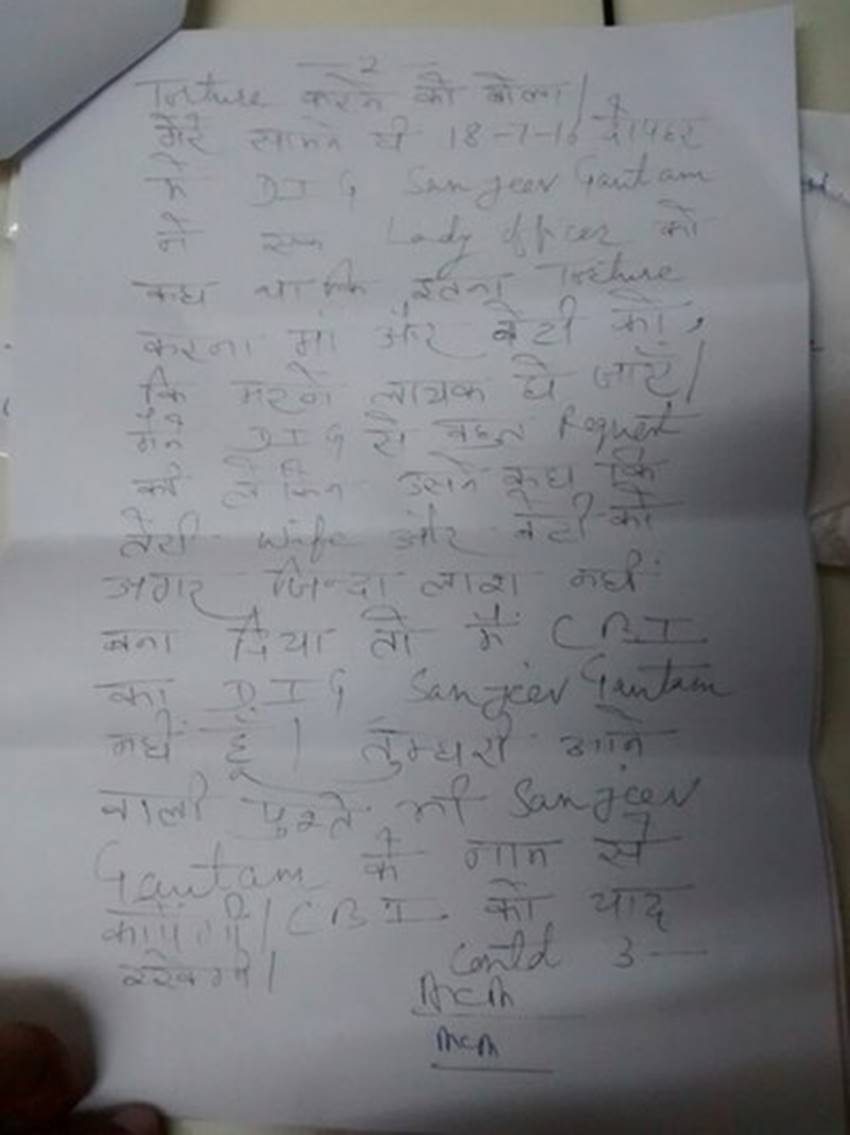 - 2 -
Torture करने को बोला।
मेरे सामने ही 18-7-16 दोपहर
में DIG Sanjeev Gautam
ने एक Lady Officer को
कहा था कि इतना Torture
करना मां और बेटी को,
कि मरने लायक हो जाएँ।
मैंने DIG से बहुत Request
की लेकिन उसने कहा कि
तेरी wife और बेटी को
अगर जिन्दा लाश नहीं
बना दिया तो मैं CBI
का DIG Sanjeev Gautam
नहीं हूँ। तुम्हारी आने
वाली पुश्ते भी Sanjeev
Gautam के नाम से
काँपेगी। CBI को याद
रखेगी।
Contd 3 —